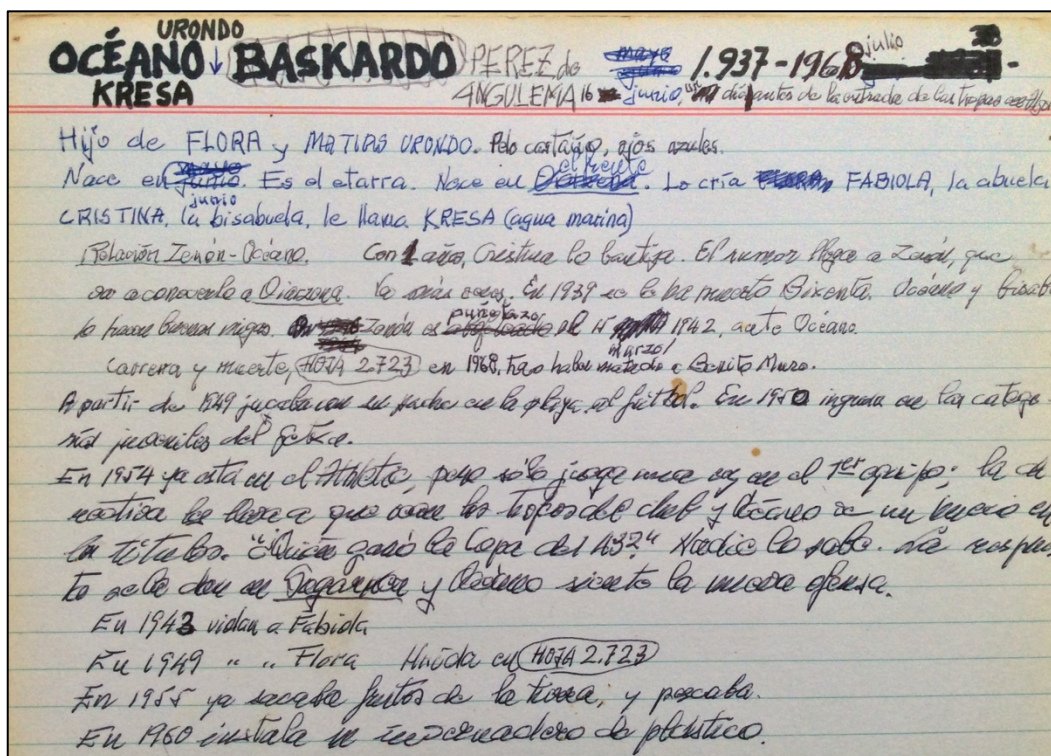 URONDO
OCÉANO ↓ BASKARDO PEREZ de 1.937-1968 julio
KRESA ANGULEMA 16 junio, un día antes de la entrada de las tropas en
Hijo de FLORA y MATIAS URONDO. Pelo castaño, ojos azules.
Nace en junio. Es el etarra. Nace en el frente. Lo cría FABIOLA, la abuela
CRISTINA, la bisabuela, le llama KRESA (agua marina)
Relación Zenón-Océano. Con 1 año, Cristina lo bautiza. El rumor llega a Zenón, que
va a conocerlo a Oiarzena. Ya más veces. En 1939 se le ha muerto Bixenta. Océano y
lo hacen buenas migas. Zenón es puñalazos el 15 1942, ante Océano.
Carrera y muerte, HOJA 2.723 en 1968, tras haber matado a Benito Muro.
marzo,
A partir de 1949 jugaba con su padre en la playa al fútbol. En 1950 ingresa en las catego-
rías juveniles del Getxo.
En 1954 ya está en el Athletic, pero sólo juega una vez en el 1er equipo; la di
rectiva les lleva a que vean los trofeos del club y Océano ve un hueco en
los títulos. "¿Quién ganó la Copa del 43?" Nadie lo sabe. La respues
ta se la dan en Sugarkea y Océano siente la nueva ofensa.
En 1943 violan a Fabiola
En 1949 " " Flora Huída en HOJA 2.723
En 1955 ya sacaba frutos de la tierra, y pescaba.
En 1960 instala un invernadero de plástico.